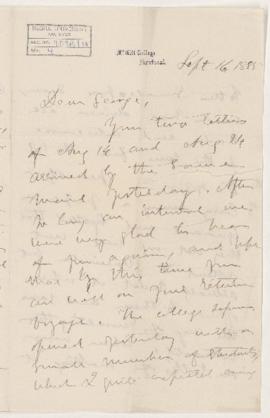 McGill College
Montreal
Sept 16 1885
Dear George,
Your two letters
of Aug 14 and Aug 24
arrived by the same
mail yesterday. After
so long an interval we
were very glad to hear
of you again, and hope
that by this time you
are well on your return
voyage. The college
opened yesterday with a
small number of students,
which I quite expected